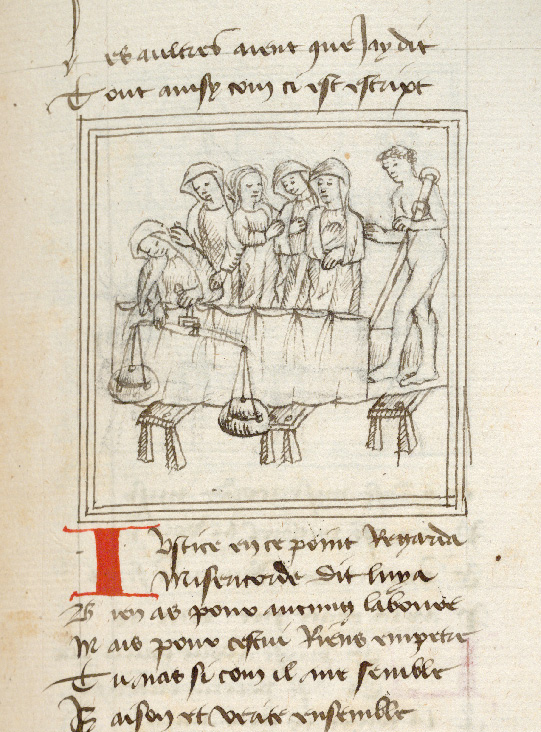 Les aultres aient que Jay dit
Tout ainsy com ci est escript
Iustice en ce point Regarda
Misericorde dit luy a
Bien as pour aucuns laboure
Mais pour cestui Riens empetre
Tu nas si com il me semble
Raison et verite ensemble